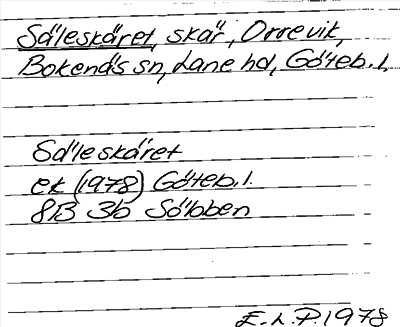 Säleskäret, skär, Orrevik,
Bokenäs sn, Lane hd, Göteb. l.
Säleskäret
ek (1978) Göteb. l.
8B 3b Sälbben
E. L. P. 1978